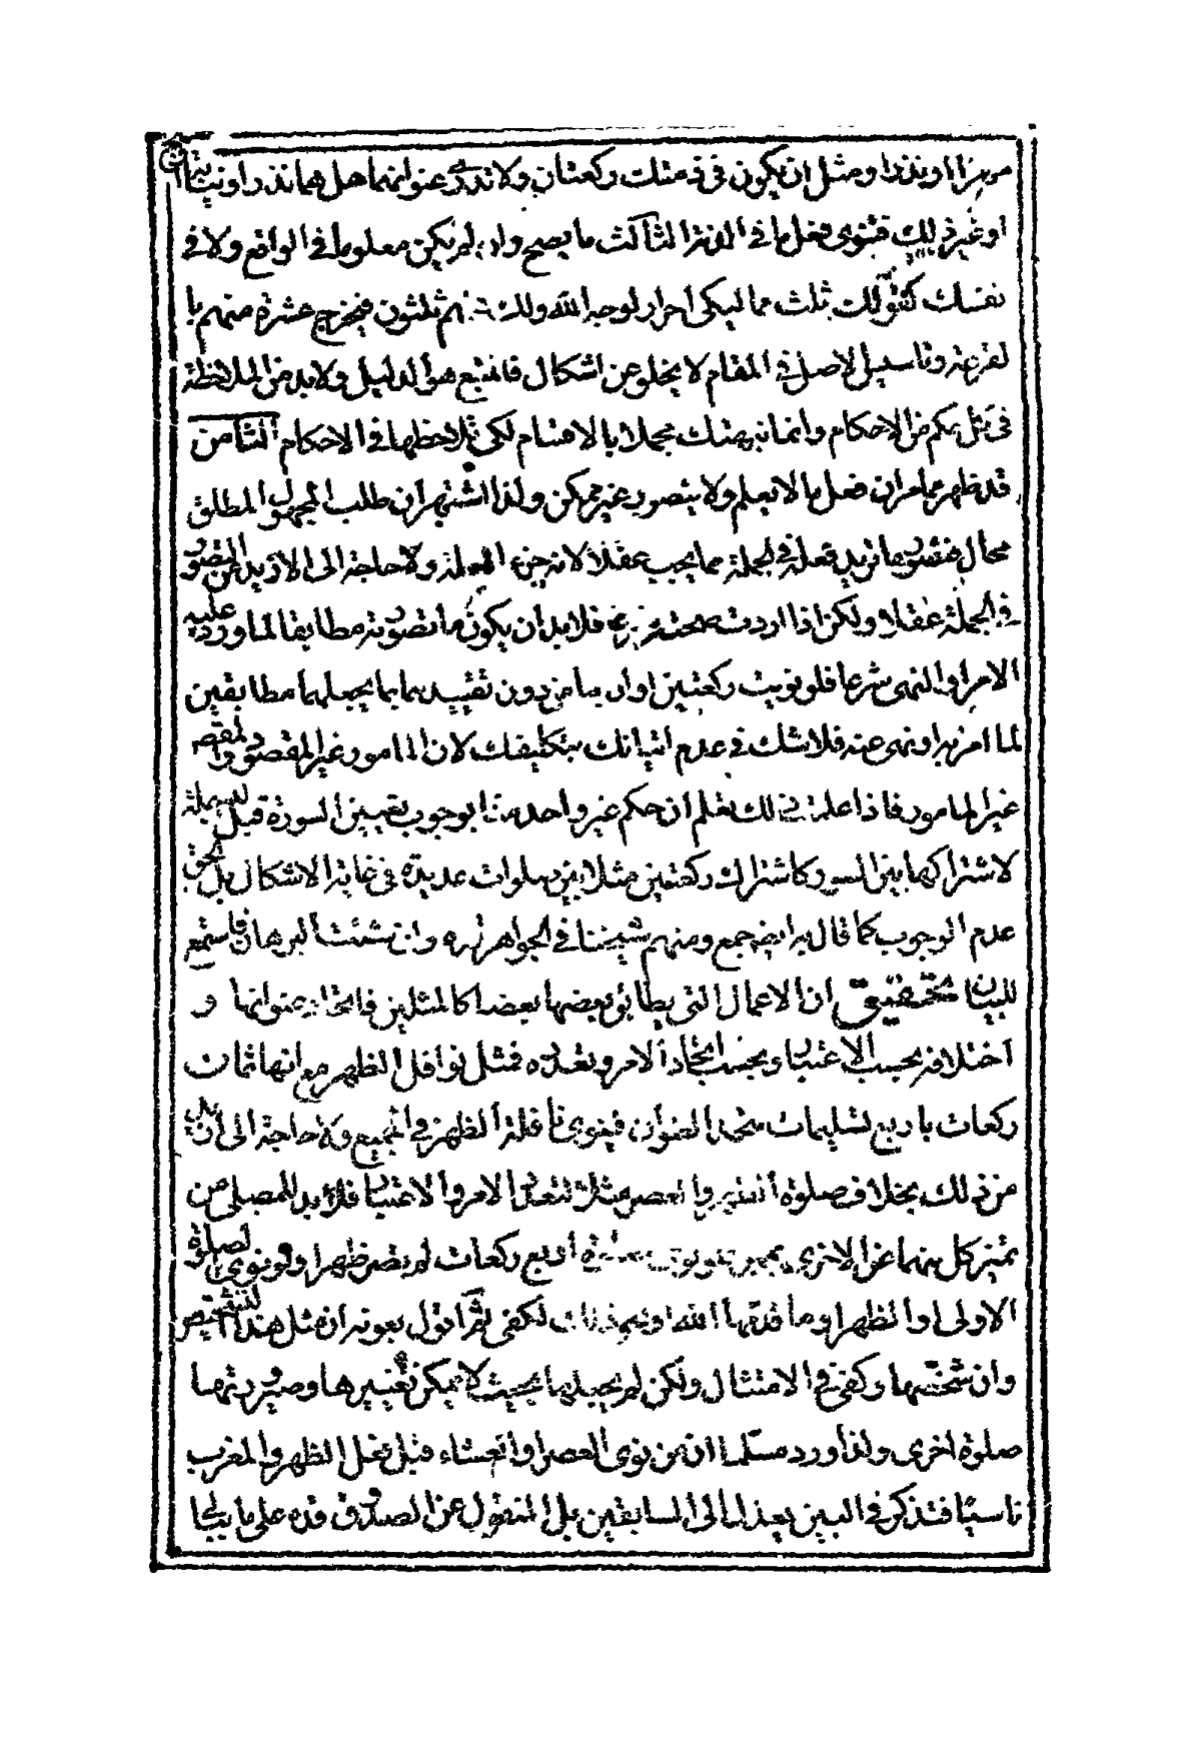 او نذرا ومثل ان يكون فى ذمتك ركعتان ولا تدرى عنوانهما هل هما نذر او نيابة
او غير ذلك فتنوى فعل ما فى الثالث ما يصح وان لم يكن معلوما فى الواقع ولا فى
نفسك كقولك ثلث مماليكى احرار لوجه الله ولك ثلثون فيخرج عشرة منهم با
لقرعة وتاسيس الاصل فى المقام لا يخلو عن اشكال فالمتبع هو الدليل ولا بد من الملاحظة
فى كل حكم من الاحكام وانما نبهتك مجملا بالاقسام لكى تلاحظها فى الاحكام الثامن
قد ظهر مما مر ان فعل ما لا يعلم ولا يتصور غير ممكن ولذا اشتهر ان طلب المجهول المطلق
محال فتصور ما تريد فعله فى الجملة مما يجب عقلا لانه جزء العلة ولا حاجة الى الازيد من التصور
فى الجملة عقلا ولكن اذا اردت صحته شرعا فلا بد ان يكون ما تصورته مطابقا لما ورد عليه
الامر او النهى شرعا فلو نويت ركعتين او اربعا من دون تقييدهما بما يجعلهما مطابقين
لما امر به او نهى عنه فلا شك فى عدم اتيانك بتكليفك لان المامور غير المقصود والمقصود
غير المامور فاذا علمت ذلك تعلم ان حكم غير واحد منا بوجوب تعيين السورة قبل البسملة
لاشتراكها بين السور كاشتراك ركعتين مثلا بين صلوات عديدة فى غاية الاشكال بل الحق
عدم الوجوب كما قال به ايضا جمع ومنهم شيخنا فى الجواهر ره وان شئت البرهان فاستمع
للبيان تحقيق ان الاعمال التى يطابق بعضها بعضا كالمثلين فاتحاد عنوانها و
اختلافه بحسب الاعتبار وبحسب اتحاد الامر وتعدده فمثل نوافل الظهر مع انها ثمان
ركعات باربع تسليمات متحد العنوان فينوى نافلة الظهر فى الجميع ولا حاجة الى ازيد
من ذلك بخلاف صلوة الظهر والعصر مثلا لتعدد الامر والاعتبار فلا بد للمصلى من
تميز كل منهما عن الاخرى اربع ركعات لم يصر ظهرا ولو نوى الصلوة
الاولى او الظهر او ما قدمها الله لكفى ثم اقول بعونه ان مثل هذا التشخيص
وان شخصها وكفى فى الامتثال ولكن لم يجعلها بحيث لا يمكن تغييرها وصيرورتها
صلوة اخرى ولذا ورد مسلما ان من نوى العصر او العشاء قبل فعل الظهر والمغرب
ناسيا فتذكر فى البين يعدل الى السابقين بل المنقول عن الصدوق قده على ما ببالى